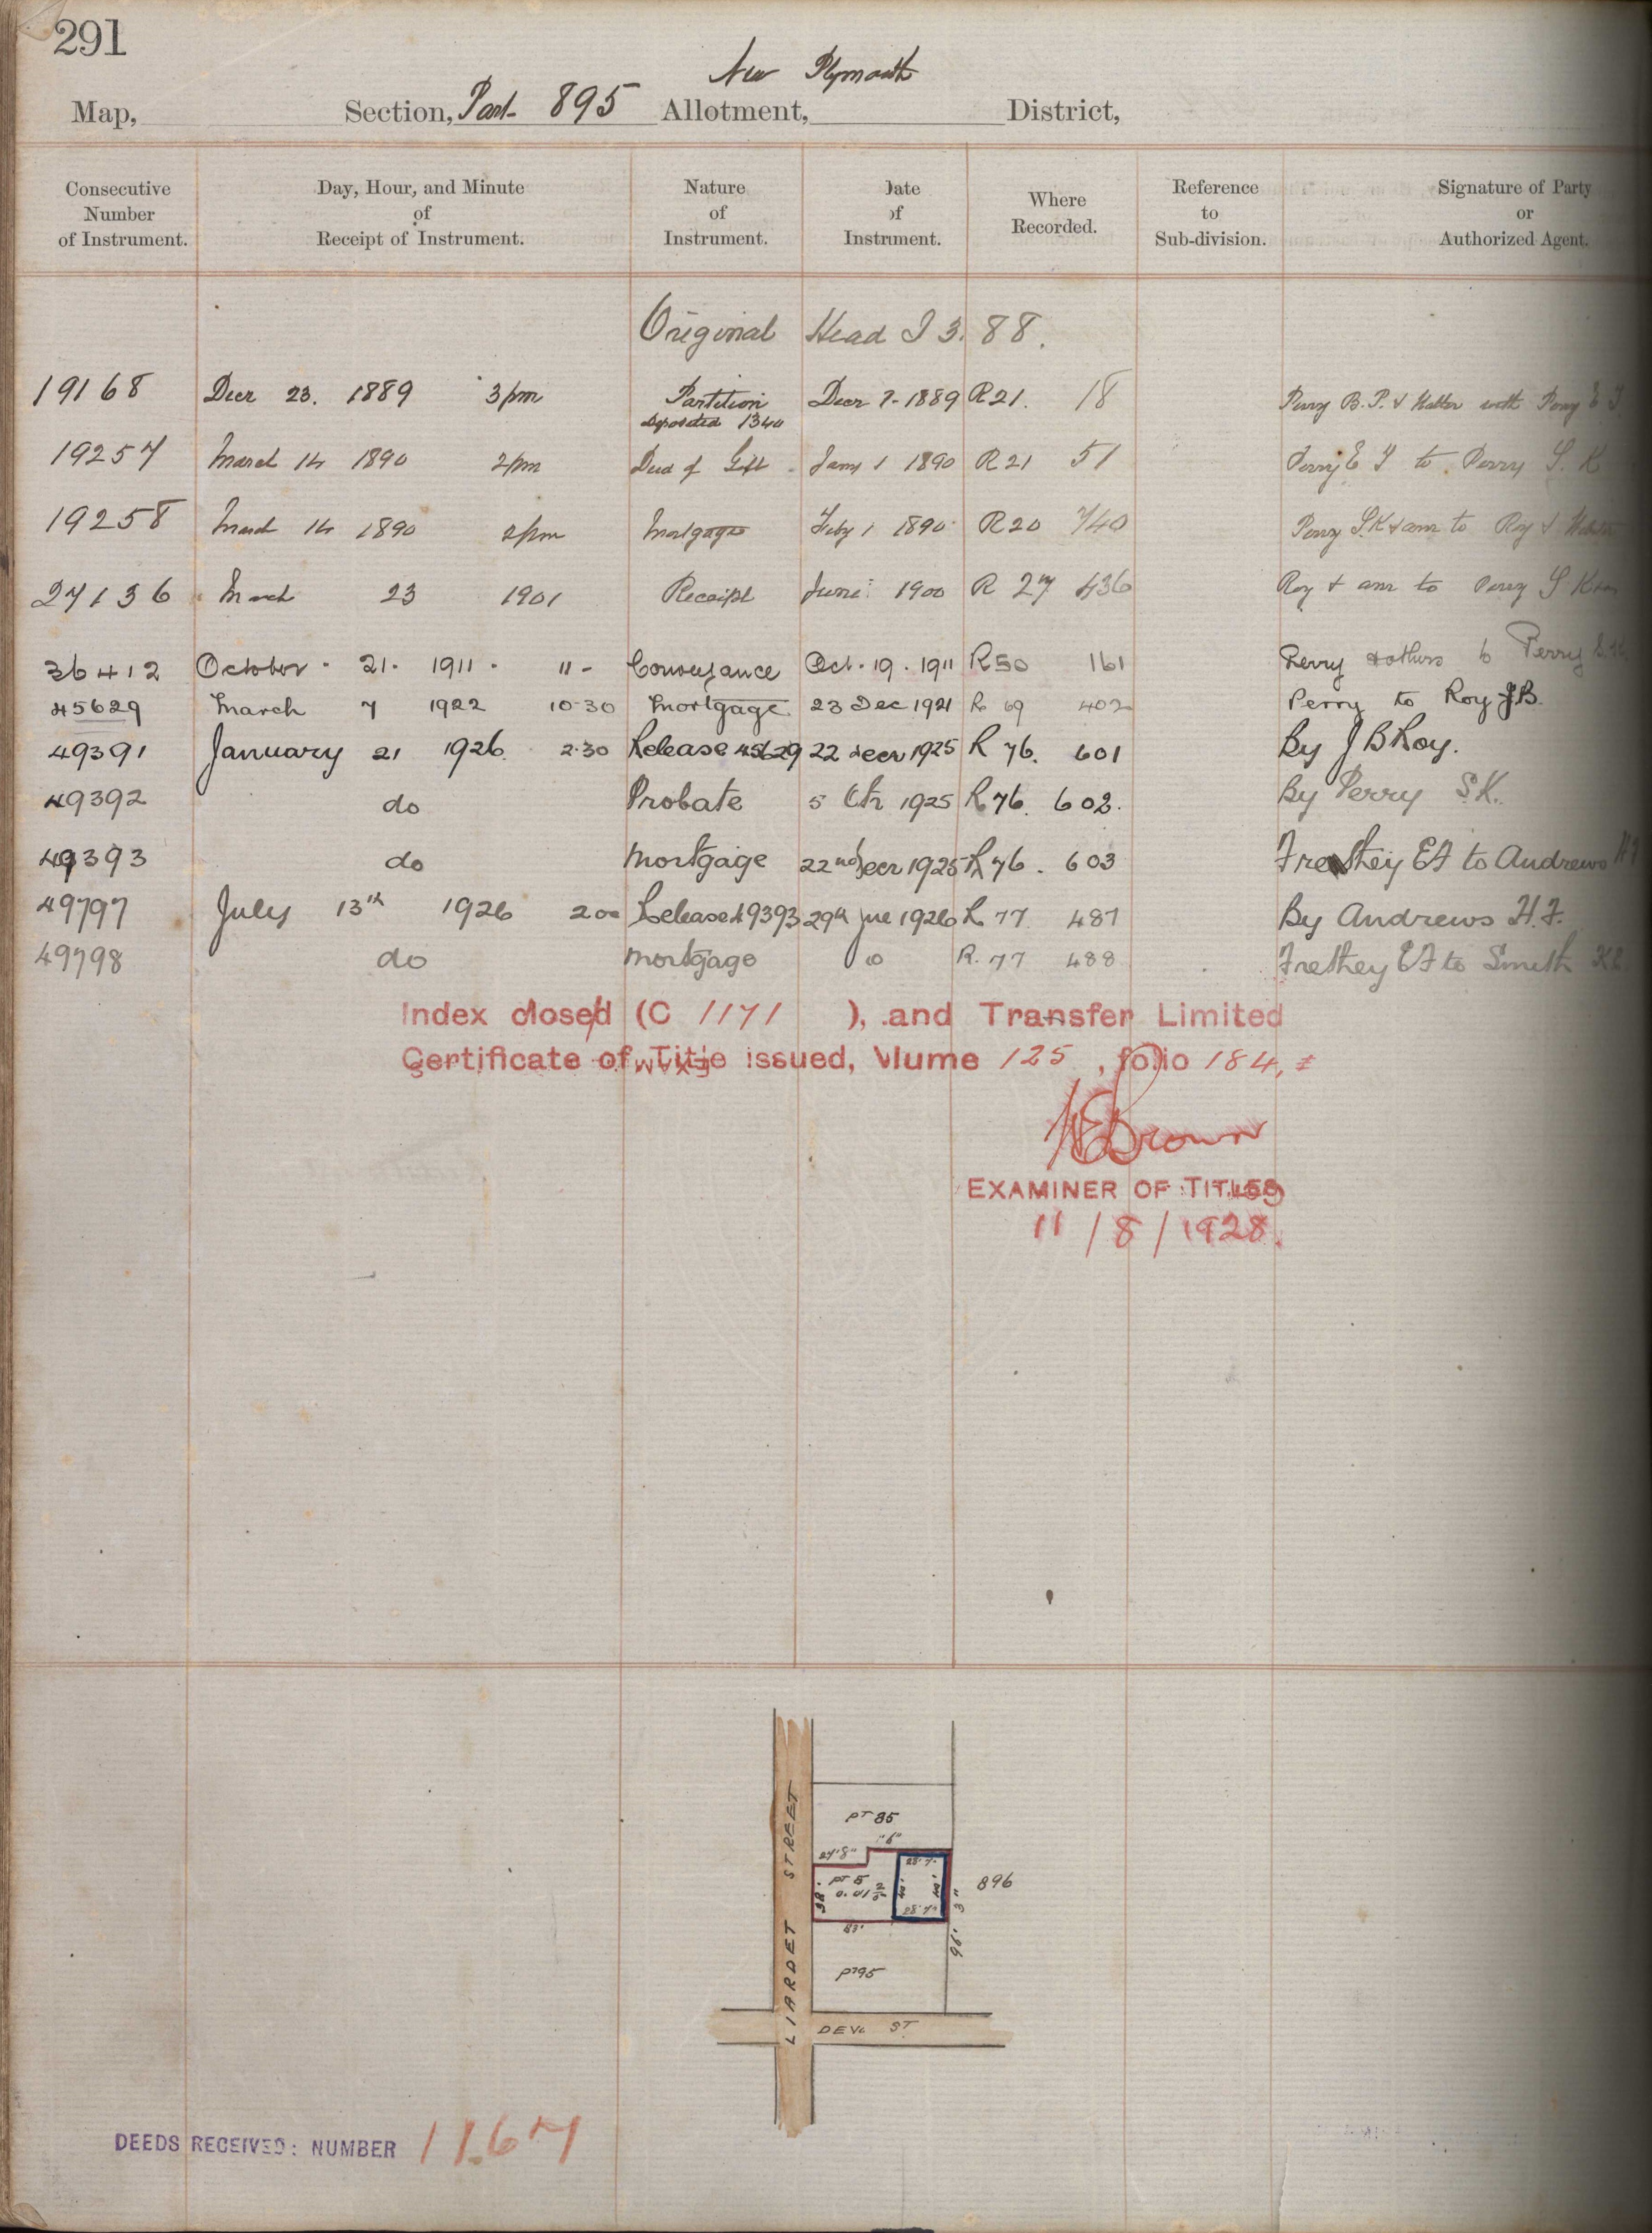 291
New Plymouth
Map, Section, Part 895 Allotment, District,
Consecutive Number of Instrument. Day, Hour, and Minute of Receipt of Instrument. Nature of Instrument. Date of Instrument. Where Recorded. Reference to Sub-division. Signature of Party or Authorized Agent.
Original Head I 3. 88.
19168 Decr 23. 1889 3pm Partition Decr 7. 1889 R21. 18 Perry B. P. & Halter with Perry E
Deposited 1340
19257 March 14 1890 2pm Deed of Gift Jany 1 1890 R21 51 Perry E to Perry S. K
19258 March 14 1890 2pm Mortgage Feby 1 1890 R20 740 Perry S.K & anr to Roy &
27136 March 23 1901 Receipt June 1900 R 27 436 Roy & anr to Perry S K
36412 October 21. 1911. 11- Conveyance Oct. 19. 1911 R50 161 Perry & others to Perry S.K
45629 March 7 1922 10-30 Mortgage 23 Dec 1921 R 69 402 Perry to Roy J.B.
49391 January 21 1926. 2.30 Release 45629 22 decr 1925 R 76. 601 By J B Roy.
49392 do Probate 5 1925 R 76. 602. By Perry S.K.
49393 do Mortgage 22nd decr 1925 R 76. 603 Frethey E F to Andrews H F
49797 July 13th 1926 2 00 Release 49393 29th June 1926 R 77 487 By Andrews H.F.
49798 do Mortgage do R. 77 488 Frethey E F to Smith
Index closed (C 1171 ), and Transfer Limited
Certificate of Title issued, Vlume 125 , folio 184,
Brown
EXAMINER OF TITLES
11/8/1928.
LIARDET STREET
PT 85
27'8"
28'7"
896
PT 5
38'
40'
40'
28'7"
83'
96' 3"
PT 95
DEV ST
DEEDS RECEIVED: NUMBER 1167